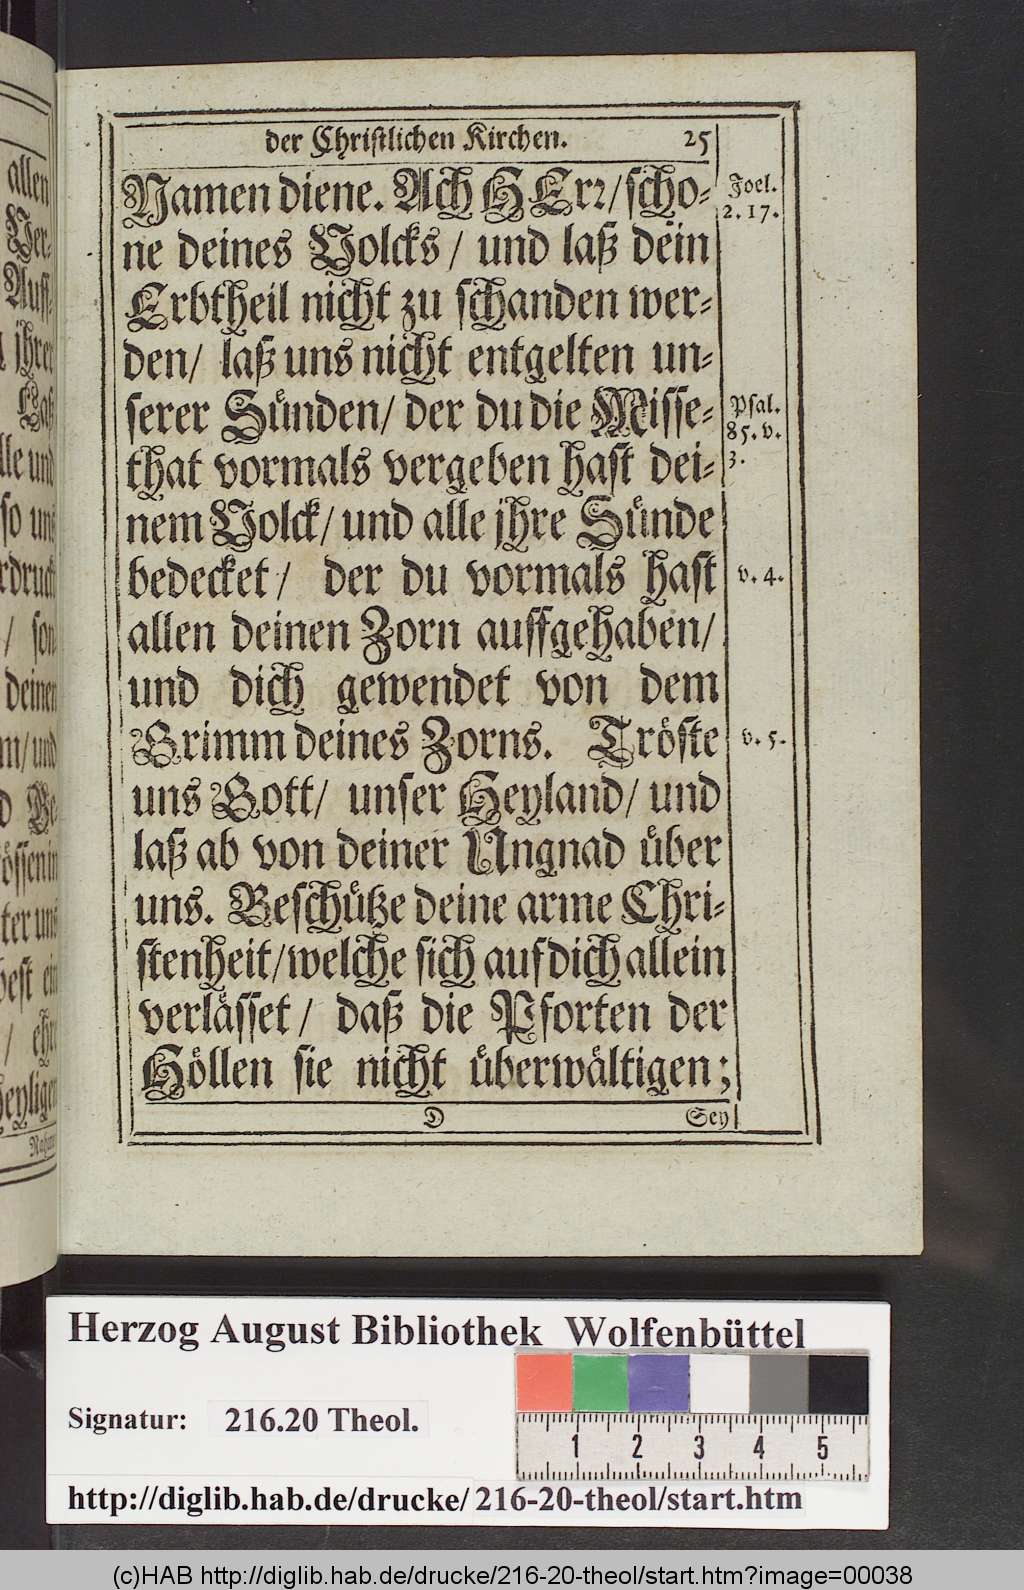 allen
Ver-
Auff-
jhrer
Laß
lle und
so uns
rdruck
/ son
deinen
m/und
d Ge-
össen in
ter uns
best ein
/ ehr
heyligen
Nahmen
der Christlichen Kirchen. 25
Namen diene. Ach HErr/scho-
Joel.
2. 17.
ne deines Volcks / und laß dein
Erbtheil nicht zu schanden wer-
den/ laß uns nicht entgelten un-
serer Sünden/ der du die Misse-
Psal.
85. v.
3.
that vormals vergeben hast dei-
nem Volck/ und alle jhre Sünde
bedecket/ der du vormals hast
v. 4.
allen deinen Zorn auffgehaben/
und dich gewendet von dem
Grimm deines Zorns. Tröste
v. 5.
uns Gott/ unser Heyland/ und
laß ab von deiner Ungnad über
uns. Beschütze deine arme Chri-
stenheit/welche sich auf dich allein
verlässet/ daß die Pforten der
Höllen sie nicht überwältigen;
D Sey
Herzog August Bibliothek Wolfenbüttel
Signatur: 216.20 Theol.
1 2 3 4 5
http://diglib.hab.de/drucke/216-20-theol/start.htm
(c)HAB http://diglib.hab.de/drucke/216-20-theol/start.htm?image=00038